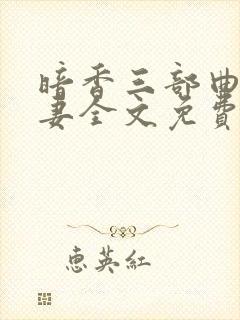 暗香三部曲
妻全文免費
惠英紅